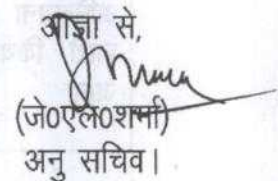 आज्ञा से,
(जे0एल0शर्मा)
अनु सचिव।